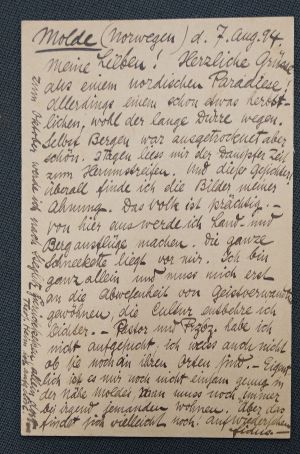 Molde (Norwegen) d. 7. Aug. 94
Meine Lieben! Herzliche Grüsse
aus einem nordischen Paradiese!
Allerdings einem schon etwas herbst-
lichen, wohl der lange Dürre wegen.
Selbst Bergen war ausgetrocknet, aber
schön. 3 Tagen liess mir der Dampfer Zeit
zum Herumstreifen. Und diese Gesichter!
überall finde ich die Bilder meiner
Ahnung. Das Volk ist prächtig. –
Von hier aus werde ich Land- und
Bergausflüge machen. Die ganze
Schneekette liegt vor mir. Ich bin
ganz allein und muss mich erst
an die Abwesenheit von Geistverwandten
gewöhnen, die Cultur entbehre ich
leichter. – Pastor und habe ich
nicht aufgesucht, ich weiss auch nicht
ob sie noch an ihren Orten sind. – Eigent-
lich ist es mir noch nicht einsam genug in
der Nähe Moldes, man muss noch immer
bei irgend jemanden wohnen. Aber das
findet sich vielleicht noch! Auf Wiedersehen
Fidus
Zum Oktober werde ich nach